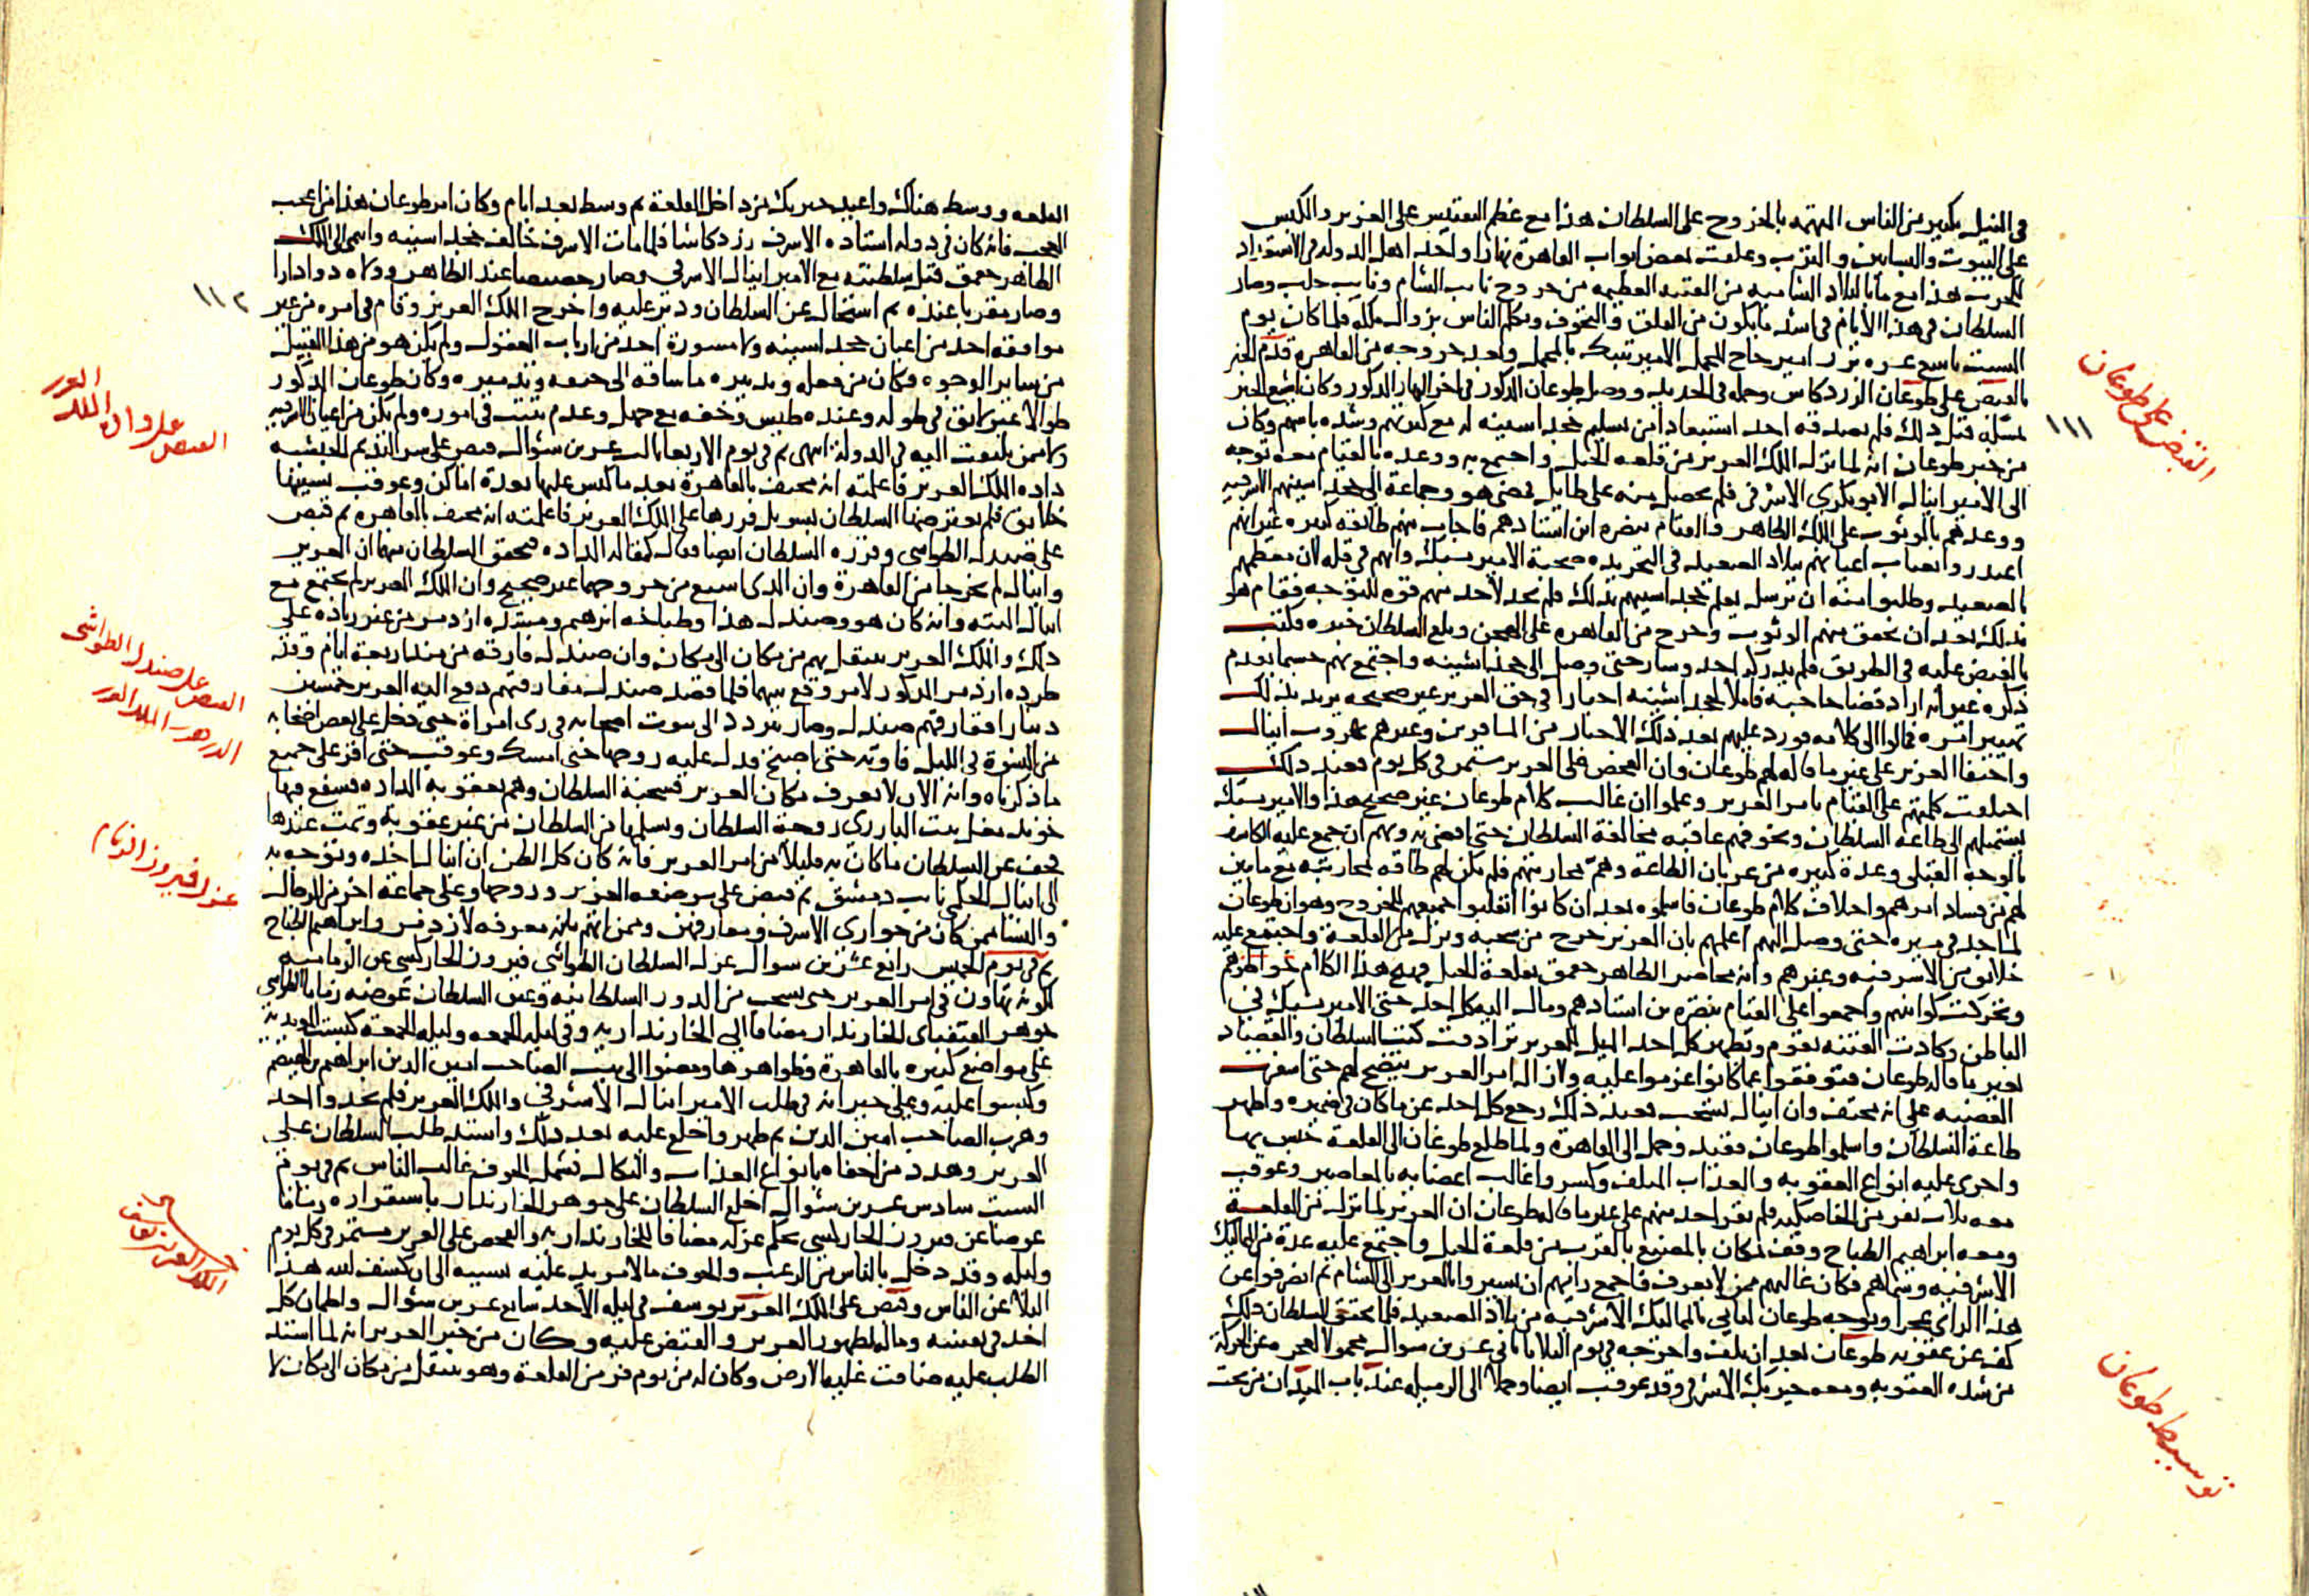 في الليل بكثير من الناس المتهمه بالخروج على السلطان هذا مع عظم التفتيش على العزيز والكبس
على البيوت والبساتين والترب وغلقت بعض ابواب القاهرة نهارا واخذ اهل الدولة في الاستعداد
للحرب هذا مع ما بالبلاد الشاميه من الفتنه العظيمه من خروج نايب الشام ونايب حلب وصار
السلطان في هذه الأيام في اشد ما يكون من القلق والتخوف وتكلم الناس بزوال ملكه فلما كان يوم
السبت تاسع عشره برز امير حاج المحمل الامير تنبك بالمحمل وبعد خروجه من القاهرة قدم الخبر
بالقبض على طوغان الزردكاش وحمله في الحديد ووصل طوغان المذكور في اخر النهار المذكور وكان اشيع الخبر
بمسكه قبل ذلك فلم يصدقه احد استبعادا من تسليم خجداشينه له مع كثرتهم وشدة باسهم وكان
من خبر طوغان انه لما نزل الملك العزيز من قلعة الجبل واجتمع به ووعده بالقيام معه توجه
الى الامير اينال الابوبكري الاشرفي فلم يحصل منه على طايل فمضى هو وجماعة الى خجداشينهم الاشرفيه
ووعدهم بالوثوب على الملك الظاهر والقيام بنصرة ابن استاذهم فاجاب منهم طائفه كبيره غير انهم
اعتذروا بغياب اعيانهم ببلاد الصعيد في التجريده صحبة الامير يشبك وانهم في قله لان معظمهم
بالصعيد وطلبوا منه ان يرسل يعلم خجداشيهم بذلك فلم يجد لأحد منهم قوة للتوجه فقام هو
بذلك بعد ان تحقق منهم الوثوب وخرج من القاهره على الهجن وبلغ السلطان خبره فكتب
بالقبض عليه في الطريق فلم يدركه احد وسار حتى وصل الى خجداشينه واجتمع بهم حسبما تقدم
ذكره غير انه اراد قضا حاجته فاملا لخجداشينه اخبارا في حق العزيز غير صحيحه يريد بذلك
تمييز اثره فمالوا الى كلامه فورد عليهم بعد ذلك الاخبار من المسافرين وغيرهم بهروب اينال
واختفا العزيز على غير ما قاله لهم طوغان وان الفحص على العزيز مستمر في كل يوم فعند ذلك
اختلفت كلمتهم على القيام بامر العزيز وعلموا ان غالب كلام طوغان غير صحيح هذا والامير يشبك
يستميلهم الى طاعة السلطان ويخوفهم عاقبة مخالفة السلطان حتى افضى به وبهم ان جمع عليه الكاشف
بالوجه القبلي وعدة كثيره من عربان الطاعة وهمّ بمحاربتهم فلم يكن لهم طاقه لمحاربته مع ما بين
لهم من فساد امرهم واختلاف كلام طوغان فاسلموه بعد ان كانوا اتفقوا جميعهم للخروج وهو ان طوغان
لما جد في سيره حتى وصل اليهم اعلمهم بان العزيز خرج من سجنه ونزل من القلعة واجتمع عليه
خلايق من الاشرفيه وغيرهم وانه محاصر الظاهر جقمق بقلعة الجبل فهيج هذا الكلام خواطرهم
وتحركت كوامنهم واجمعوا على القيام بنصرة ابن استاذهم ومال اليه كل احد حتى الامير يشبك في
الباطن وكادت الفتنه تقوم ويظهر كل احد الميل للعزيز ترادفت كتب السلطان والقصاد
بغير ما قاله طوغان فتوقفوا عما كانوا عزموا عليه ولا زال امر العزيز يتضح لهم حتى اسفرت
القضيه على انه مختف وان اينال تسحب فعند ذلك رجع كل احد عن ما كان في ضميره واظهر
طاعة السلطان واسلموا طوغان فقيد وحمل الى القاهرة ولما طلع طوغان الى القلعة حبس بها
واجرى عليه انواع العقوبه والعذاب المتلف وكسروا غالب اعضايه بالمعاصير وعوقب
معه ثلاث نفر من الخاصكيه فلم يقر احد منهم على غير ما قاله طوغان ان العزيز لما نزل من القلعة
ومعه ابراهيم الطباخ وقف لمكان بالمصنع بالقرب من قلعة الجبل واجتمع عليه عدة من المماليك
الاشرفيه وسماهم فكان غالبهم ممن لا يعرف فاجمع رايهم ان يسيروا بالعزيز الى الشام ثم انصرفوا عن
هذا الراي عجزا وتوجه طوغان لياتي بالمماليك الاشرفيه من بلاد الصعيد فلما تحقق السلطان ذلك
كف عن عقوبة طوغان بعد ان تلف واخرجه في يوم الثلاثا ثاني عشرين شوال محمولا لعجزه عن الحركة
من شدة العقوبه ومعه خيربك الاشرفي وقد عوقب ايضا وحملا الى الرميله عند باب الميدان من تحت
القبض على طوغان
١١١
توسيط طوغان
القلعه ووسط هناك واعيد خيربك من داخل القلعة ثم وسط بعد ايام وكان امر طوغان هذا من اعجب
العجب فانه كان في دولة استاذه الاشرف زردكاشا فلما مات الاشرف خالف خجداشينه وانتمى الى الملك
الظاهر جقمق قبل سلطنته مع الامير اينال الاشرفي وصار خصيصا عند الظاهر وولاه دوادارا
وصار مقربا عنده ثم استحال عن السلطان ودبر عليه واخرج الملك العزيز وقام في امره من غير
موافقة احد من اعيان خجداشينه ولا مشورة احد من ارباب العقول ولم يكن هو من هذا القبيل
من ساير الوجوه فكان من فعله وتدبيره ما ساقه الى حتفه وتدميره وكان طوغان المذكور
طوالا غير لايق في طوله وعنده طيش وخفه مع جهل وعدم تثبت في اموره ولم يكن من اعيان الاشرفيه
ولا ممن يلتفت اليه في الدولة انتهى ثم في يوم الاربعا ثالث عشرين شوال قبض على سر النديم الحبشيه
داده الملك العزيز فاعلمته انه مختف بالقاهرة بعد ما كبس عليها بعدة اماكن وعوقب بسببها
خلايق فلم يعترضها السلطان بسوء بل قررها على الملك العزيز فاعلمته انه مختف بالقاهره ثم قبض
على صندل الطواشي وقرره السلطان ايضا فقال كمقالة الداده فتحقق السلطان منهما ان العزيز
واينال لم يخرجا من القاهرة وان الذي اشيع من خروجهما غير صحيح وان الملك العزيز لم يجتمع مع
اينال البته وانه كان هو وصندل هذا وطباخه ابراهيم ومشده ازدمر من غير زياده على
ذلك والملك العزيز ينتقل بهم من مكان الى مكان وان صندل فارقه من منذ اربعة ايام وقد
طرده ازدمر المذكور لامر وقع بينهما فلما قصد صندل مفارقتهم دفع اليه العزيز خمسين
دينارا ففارقهم صندل وصار يتردد الى بيوت اصحابه في زي امراة حتى دخل على بعض اصحابه
من النسوة في الليل فاوته حتى اصبح فدل عليه زوجها حتى امسك وعوقب حتى اقر على جميع
ما ذكرناه وانه الان لا يعرف مكان العزيز فسجنه السلطان وهمّ بعقوبة الداده فشفع فيها
خوند مغل بنت البارزي زوجة السلطان وتسلمتها من السلطان من غير عقوبة وتمت عندها
فخف عن السلطان ما كان به قليلا من امر العزيز فانه كان كل الظن ان اينال اخذه وتوجه به
الى اينال الجكمي نايب دمشق ثم قبض على مرضعه العزيز وزوجها وعلى جماعة اخر من الرجال
والنسا ممن كان من جواري الاشرف ومعارفهن وممن اتهم بانه معرفه لازدمر وابراهيم الطباخ
ثم في يوم الخميس رابع عشرين شوال عزل السلطان الطواشي فيروز الجاركسي عن الزماميه
لكونه تهاون في امر العزيز حتى تسحب من الدور السلطانيه وعين السلطان عوضه زماما الطواشي
جوهر القنقباي الخازندار مضافا الى الخازنداريه وفي ليلة الجمعه وليله الجمعة كبست المويديه
على مواضع كثيره بالقاهرة وظواهرها ومضوا الى بيت الصاحب امين الدين ابراهيم بن الهيصم
وكبسوا عليه وعلى جيرانه في طلب الامير اينال الأشرفي والملك العزيز فلم يجدوا احد
وهرب الصاحب امين الدين ثم ظهر واخلع عليه بعد ذلك واشتد طلب السلطان على
العزيز وهدد من اخفاه بانواع العذاب والنكال فشمل الخوف غالب الناس ثم في يوم
السبت سادس عشرين شوال اخلع السلطان على جوهر الخازندار باستقراره زماما
عوضا عن فيروز الجاركسي بحكم عزله مضافا للخازنداريه والفحص على العزيز مستمر في كل يوم
وليله وقد دخل بالناس من الرعب والخوف ما لا مزيد عليه بسببه الى ان كشف الله هذا
البلا عن الناس وقبض على الملك العزيز يوسف في ليلة الأحد سابع عشرين شوال واطمان كل
احد في بيته وماله بظهور العزيز والقبض عليه وكان من خبر العزيز انه لما اشتد
الطلب عليه ضاقت عليه الارض وكان له من يوم فر من القلعة وهو ينتقل من مكان الى مكان لا
١١٢
القبض على داده الملك العزيز
القبض على صندل الطواشي
عزل فيروز الزمام
الملك العزيز يوسف